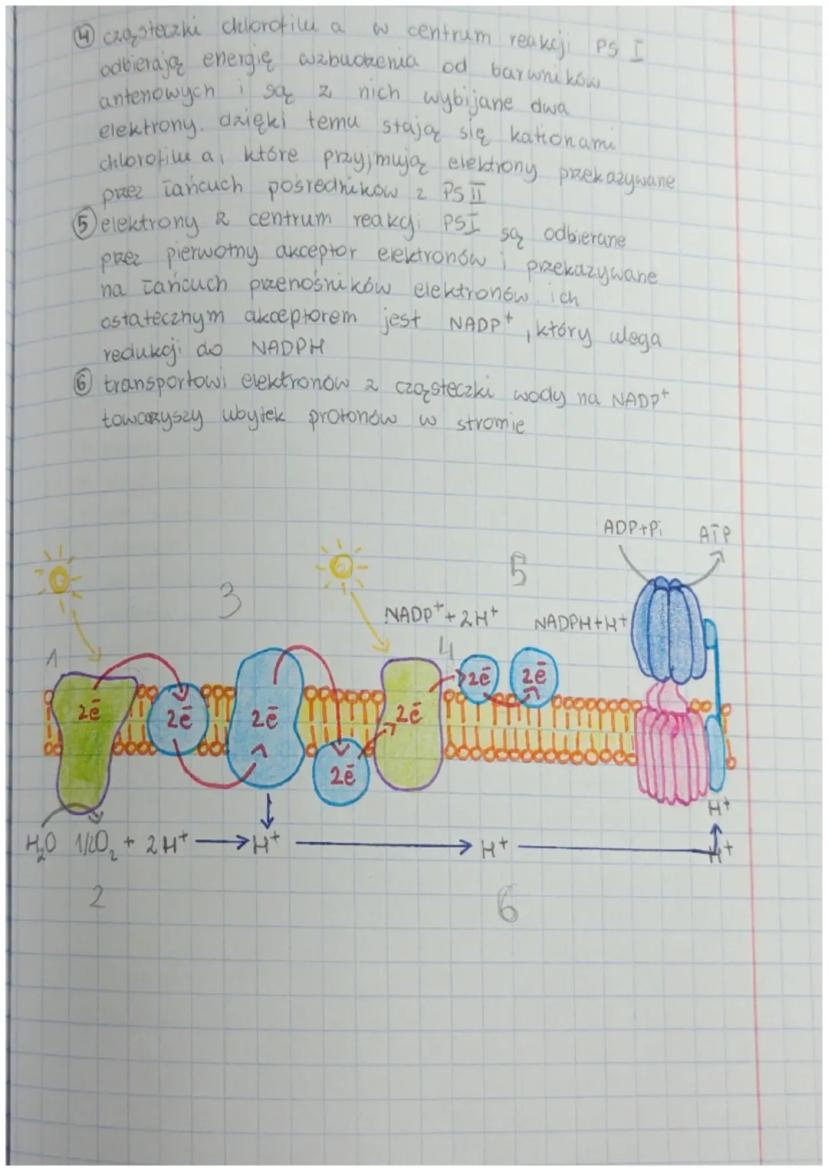 ④ cząsteczki chlorofilu a w centrum reakcji PS I
odbierają energię wzbudzenia od barwników
antenowych i są z nich wybijane dwa
elektrony. dzięki temu stają się kationami
chlorofilu a, które przyjmują elektrony przekazywane
przez łańcuch pośredników z PS II
⑤ elektrony z centrum reakcji PSI są odbierane
przez pierwotny akceptor elektronów i przekazywane
na łańcuch przenośników elektronów. ich
ostatecznym akceptorem jest NADP⁺, który ulega
redukcji do NADPH
⑥ transportowi elektronów z cząsteczki wody na NADP⁺
towarzyszy ubytek protonów w stromie
ADP+Pi ATP
5
3
NADP⁺ + 2H⁺ NADPH+H⁺
1 4
2ē 2ē
2ē 2ē 2ē 2ē
2ē
H⁺
H₂O 1/2O₂ + 2H⁺ → H⁺ → H⁺ → H⁺
2 6